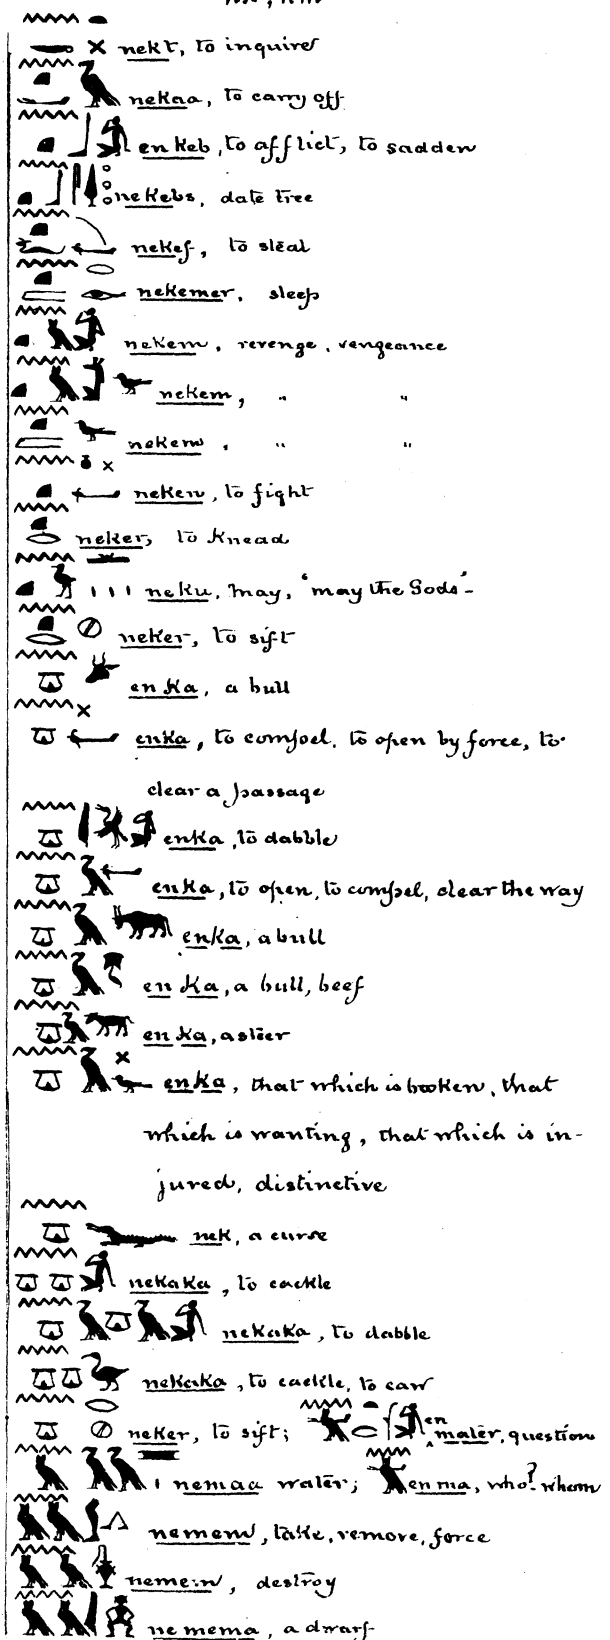 nekt, to inquire
nekaa, to carry off
en keb, to afflict, to sadden
nekebs, date tree
nekef, to steal
nekemer, sleep
nekem, revenge, vengeance
nekem, " "
nekem, " "
neken, to fight
neker, to knead
neku, may, 'may the Gods'-
neker, to sift
en ka, a bull
enka, to compel, to open by force, to
clear a passage
enka, to dabble
enka, to open, to compel, clear the way
enka, a bull
en ka, a bull, beef
en ka, a steer
enka, that which is broken, that
which is wanting, that which is in-
jured, distinctive
nek, a curse
nekaka, to cackle
nekaka, to dabble
nekaka, to cackle, to caw
neker, to sift; en mater, question
nemaa water; en ma, who? whom
nemem, take, remove, force
nemem, destroy
nemema, a dwarf